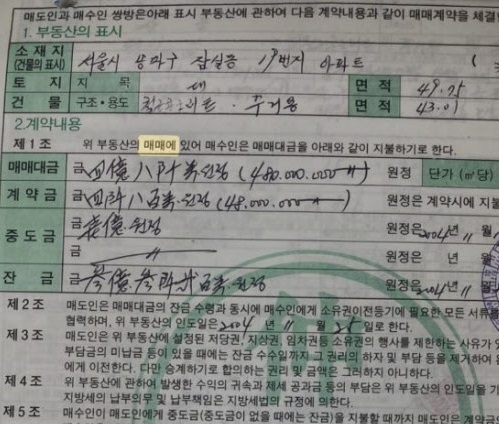 매도인과 매수인 쌍방은아래 표시 부동산에 관하여 다음 계약내용과 같이 매매계약을 체결
1. 부동산의 표시
소재지 (건물의 표시) 서울시 송파구 잠실동 19번지 아파트 (
토지 지목 대 면적 49.75
건물 구조·용도 철근콘크리트 · 주거용 면적 43.01
2.계약내용
제1조 위 부동산의 매매에 있어 매수인은 매매대금을 아래와 같이 지불하기로 한다.
매매대금 금 四億八阡 원정 (480.000.000 원정 단가 (㎡당)
계약금 금 四阡八百 원정 (48.000.000 원정은 계약시에 지불
중도금 금 壹億 원정 원정은 2004년 11월
금 〃 원정은 년 월
잔금 금 參億參阡 百 원정 원정은 2004년 11
제2조 매도인은 매매대금의 잔금 수령과 동시에 매수인에게 소유권이전등기에 필요한 모든 서류를
협력하며, 위 부동산의 인도일은 2004년 11월 25일로 한다.
제3조 매도인은 위 부동산에 설정된 저당권, 지상권, 임차권등 소유권의 행사를 제한하는 사유가 있
부담금의 미납금 등이 있을 때에는 잔금 수수일까지 그 권리의 하자 및 부담 등을 제거하여 완
에게 이전한다. 다만 승계하기로 합의하는 권리 및 금액은 그러하지 아니하다.
제4조 위 부동산에 관하여 발생한 수익의 귀속과 제세 공과금 등의 부담은 위 부동산의 인도일을 기
지방세의 납부의무 및 납부책임은 지방세법의 규정에 의한다.
제5조 매수인이 매도인에게 중도금(중도금이 없을 때에는 잔금)을 지불할 때까지 매도인은 계약금의